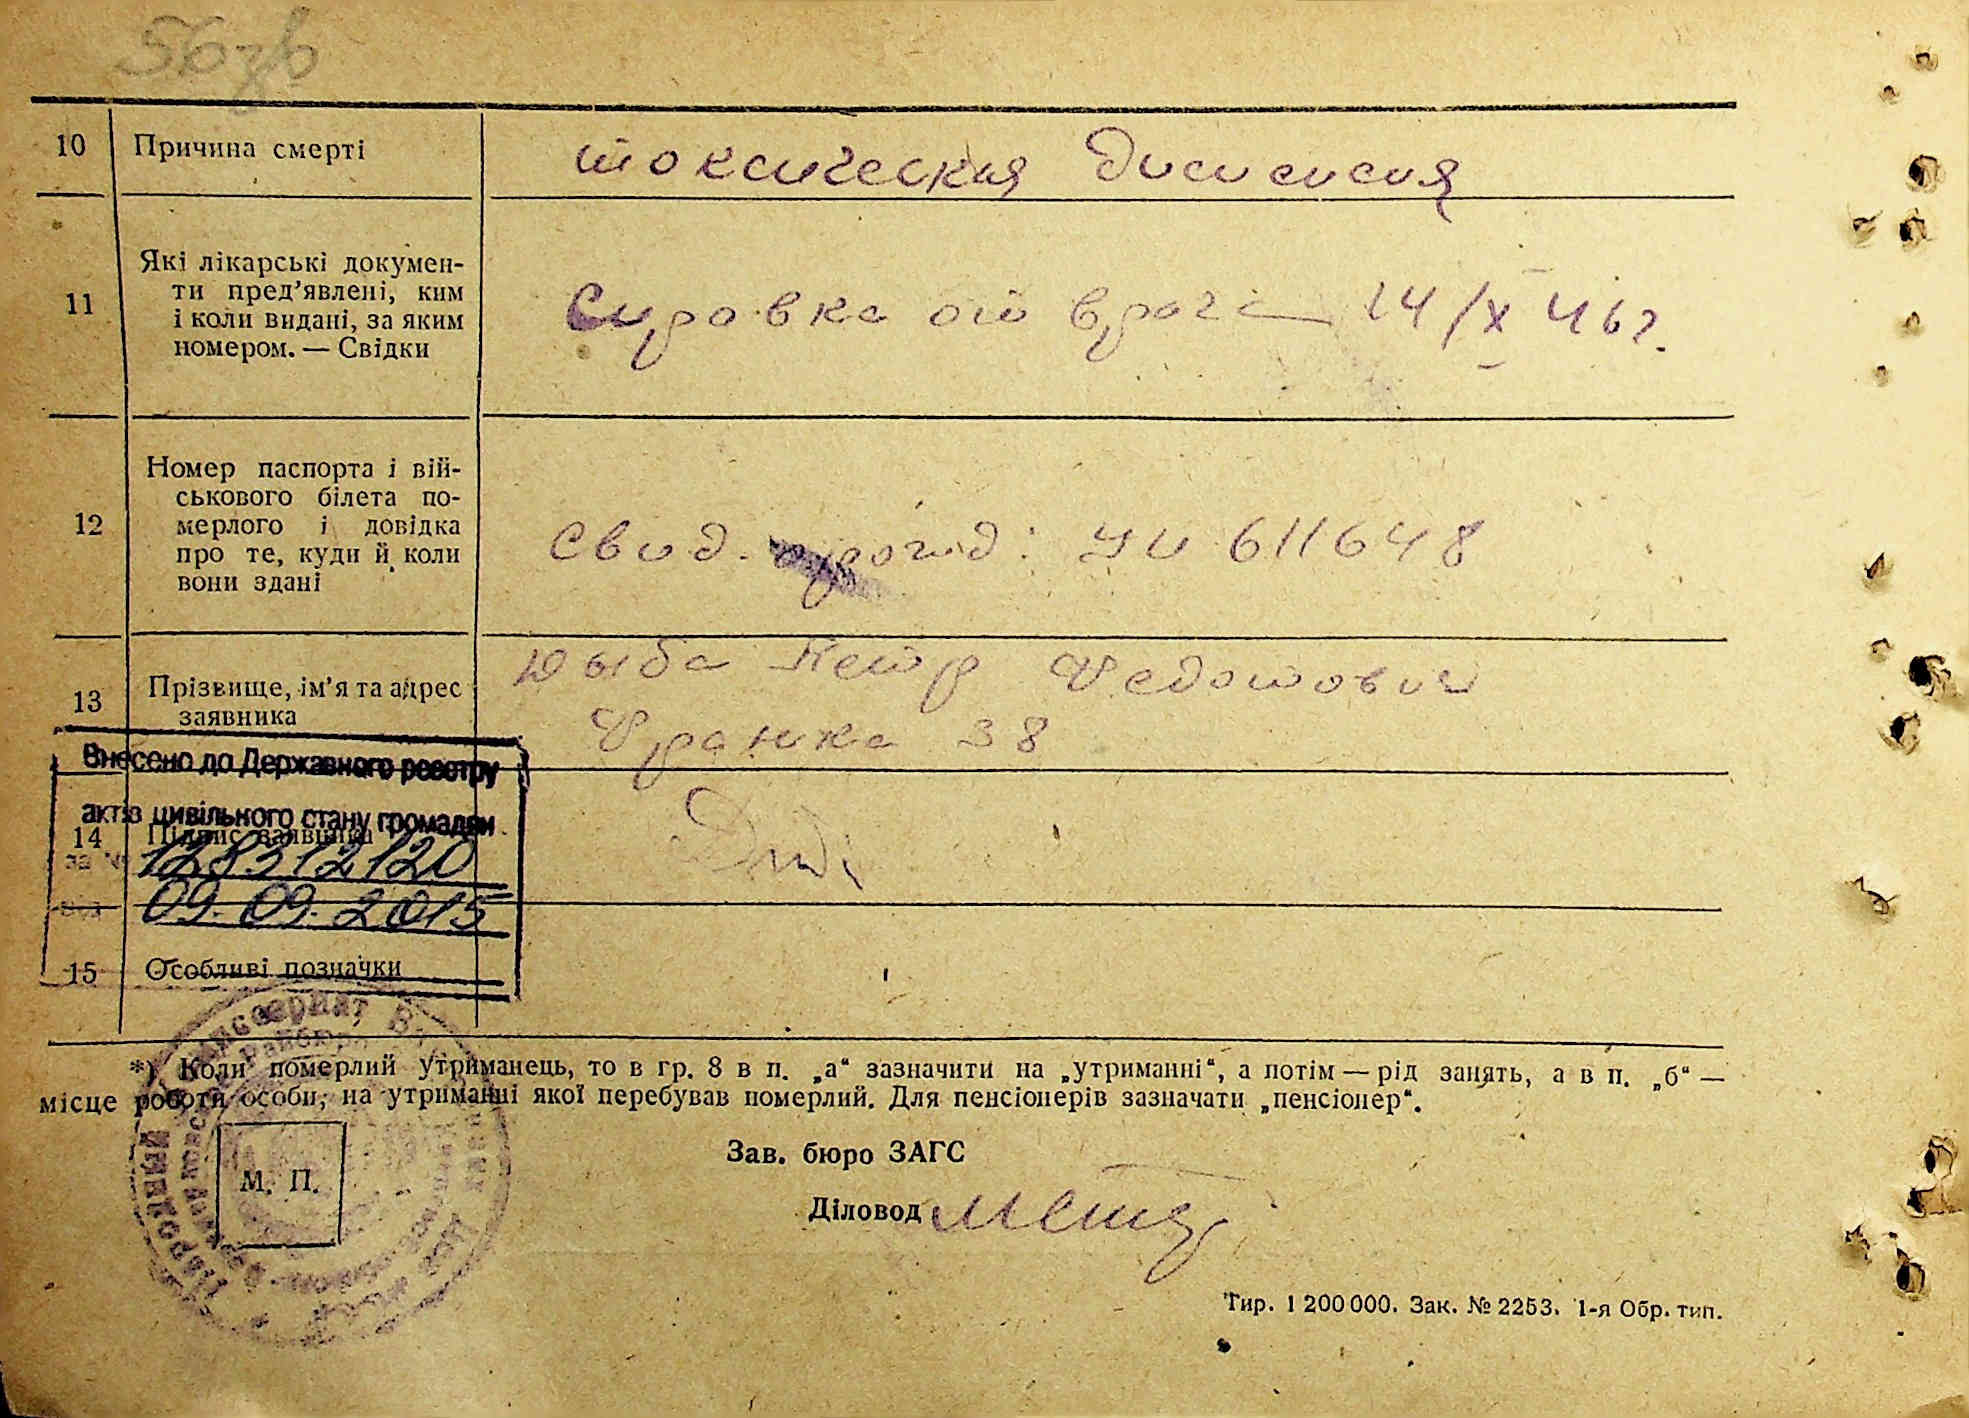 56зв
10 Причина смерті токсическая диспепсия
11 Які лікарські докумен-
ти пред'явлені, ким
і коли видані, за яким
номером. — Свідки
Справка от врача 14/X 46г.
12 Номер паспорта і вій-
ськового білета по-
мерлого і довідка
про те, куди й коли
вони здані
Свид. о рожд: УИ 611648
13 Прізвище, ім'я та адрес
заявника
Дыба Петр Федотович
Франка 38
Внесено до Державного реєстру
актів цивільного стану громадян
14 Підпис заявника
за № 128312120
від 09.09.2015
15 Особливі позначки
*) Коли померлий утриманець, то в гр. 8 в п. „а“ зазначити на „утриманні“, а потім — рід занять, а в п. „б“ —
місце роботи особи, на утриманні якої перебував померлий. Для пенсіонерів зазначати „пенсіонер“.
Зав. бюро ЗАГС
М. П.
Діловод
Тир. 1 200 000. Зак. № 2253. 1-я Обр. тип.